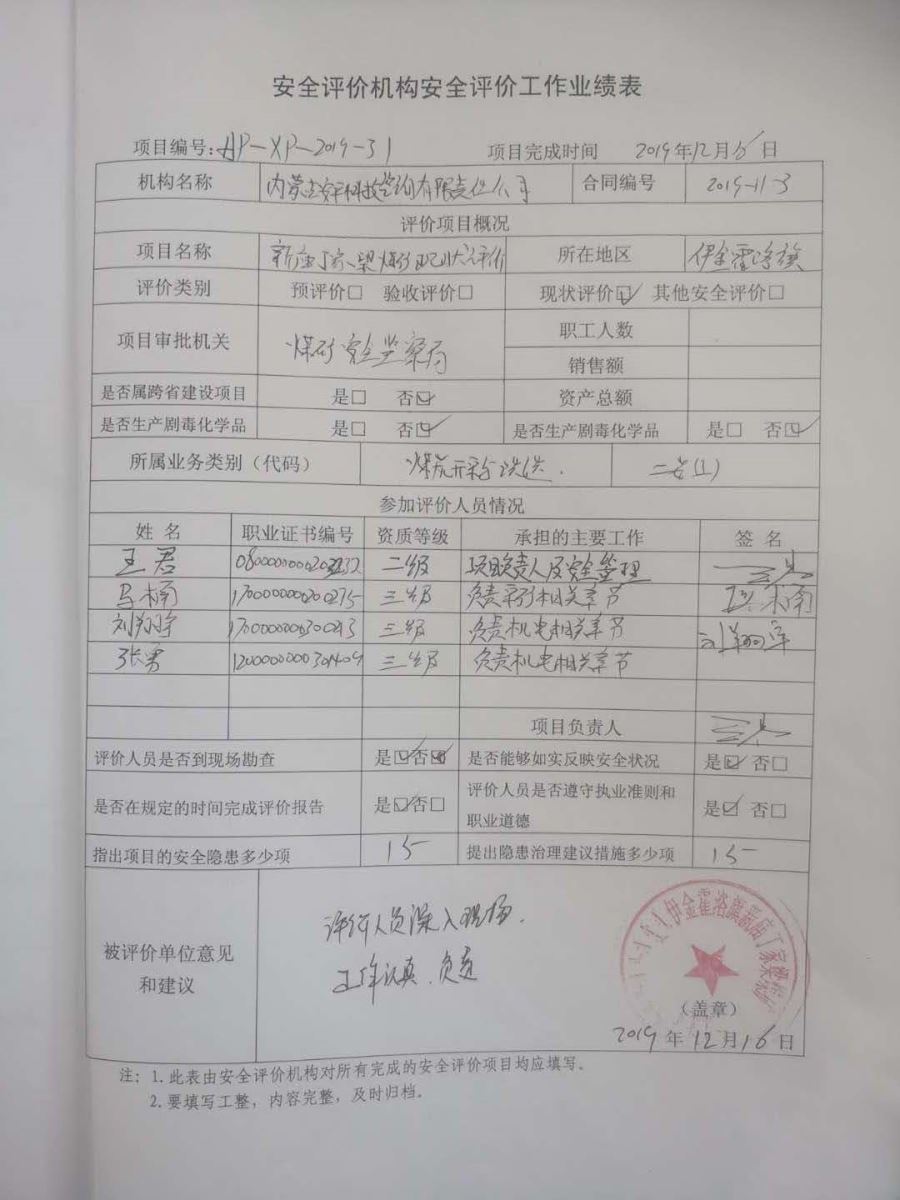 安全评价机构安全评价工作业绩表
项目编号：AP-XP-2019-31 项目完成时间 2019年12月16日
机构名称 内蒙古安科技咨询有限责任公司 合同编号 2019-11-3
评价项目概况
项目名称 新庙丁家梁煤矿现状评价 所在地区 伊金霍洛旗
评价类别 预评价□ 验收评价□ 现状评价☑ 其他安全评价□
项目审批机关 煤矿安全监察局 职工人数
销售额
是否属跨省建设项目 是□ 否☑ 资产总额
是否生产剧毒化学品 是□ 否☑ 是否生产剧毒化学品 是□ 否☑
所属业务类别（代码） 煤炭开采洗选.
参加评价人员情况
姓名 职业证书编号 资质等级 承担的主要工作 签名
王君 二级 项目负责人及安全管理 王君
马楠 三级 负责采矿相关章节 马楠
刘翔宇 三级 负责机电相关章节 刘翔宇
张勇 三级 负责机电相关章节
项目负责人 王君
评价人员是否到现场勘查 是☑否☑ 是否能够如实反映安全状况 是☑ 否□
是否在规定的时间完成评价报告 是☑否□ 评价人员是否遵守执业准则和
职业道德 是☑ 否□
指出项目的安全隐患多少项 15 提出隐患治理建议措施多少项 15
被评价单位意见
和建议
评价人员深入现场.
工作认真.负责
伊金霍洛旗新庙丁家梁煤矿
（盖章）
2019年12月16日
注：1.此表由安全评价机构对所有完成的安全评价项目均应填写。
2.要填写工整，内容完整，及时归档。